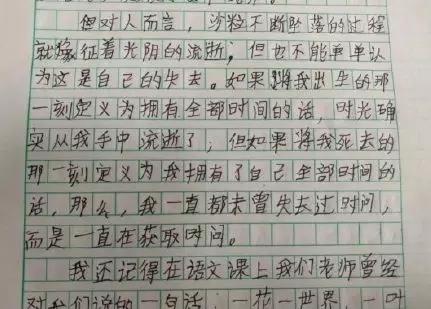 但对人而言，沙粒不断坠落的过程
就像征着光阴的流逝；但也不能单单认
为这是自己的失去。如果将我出生的那
一刻定义为拥有全部时间的话，时光确
实从我手中流逝了，但如果将我死去的
那一刻定义为我拥有了自己全部时间的
话，那么，我一直都未曾失去过时间，
而是一直在获取时间。
我还记得在语文课上我们老师曾经
对我们说的一句话：一花一世界，一叶